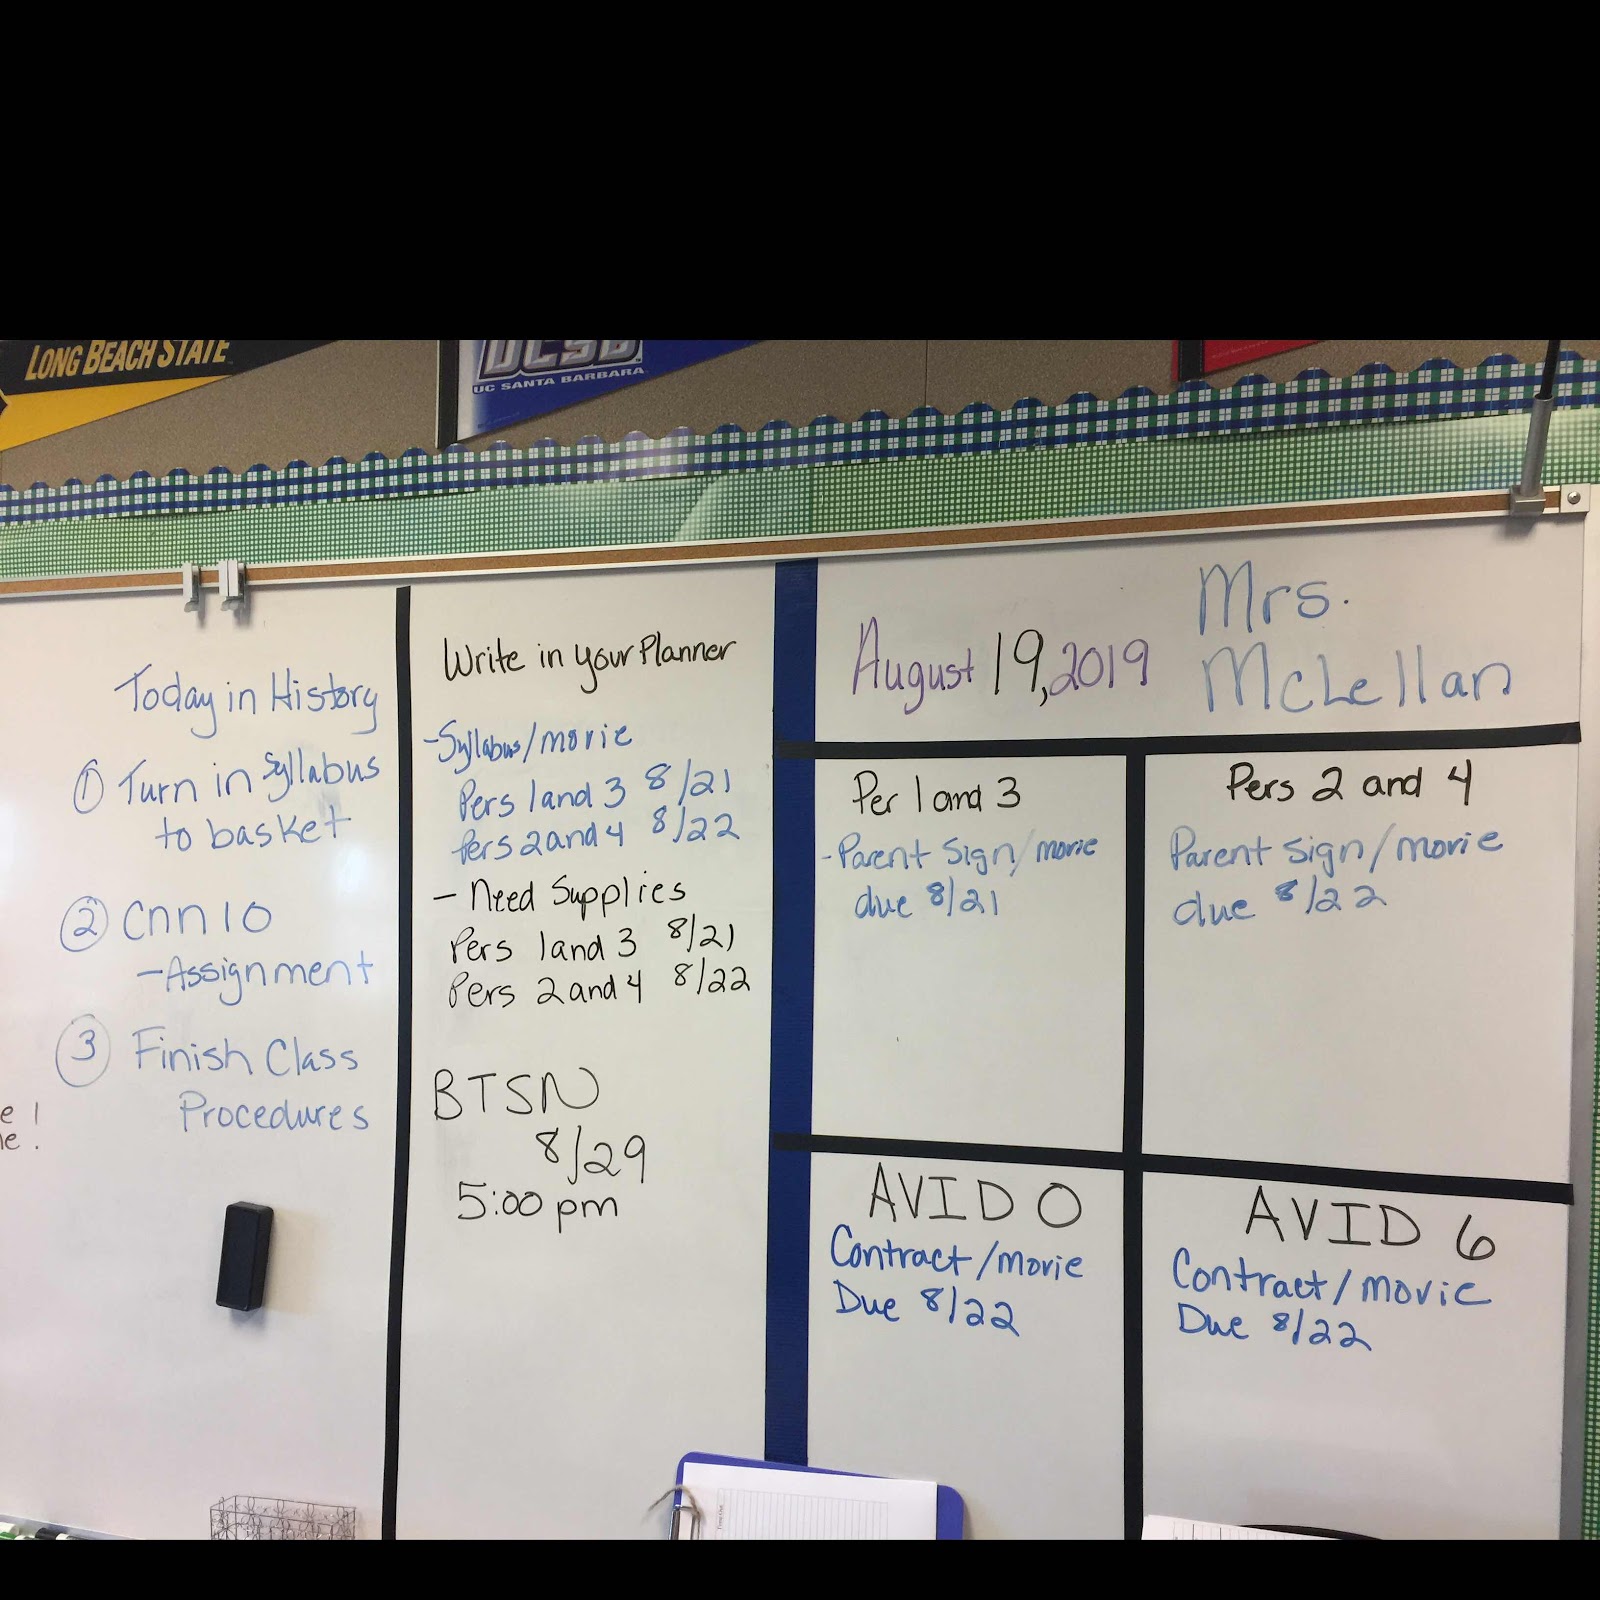 LONG BEACH STATE
UCSB
UC SANTA BARBARA
Today in History
① Turn in Syllabus
to basket
② Cnn 10
- Assignment
③ Finish Class
Procedures
Write in your Planner
- Syllabus/movie
Pers 1 and 3 8/21
Pers 2 and 4 8/22
- Need Supplies
Pers 1 and 3 8/21
Pers 2 and 4 8/22
BTSN
8/29
5:00 pm
August 19, 2019
Mrs.
McLellan
Per 1 and 3
- Parent Sign/movie
due 8/21
Pers 2 and 4
Parent Sign/movie
due 8/22
AVID 0
Contract/movie
Due 8/22
AVID 6
Contract/movie
Due 8/22